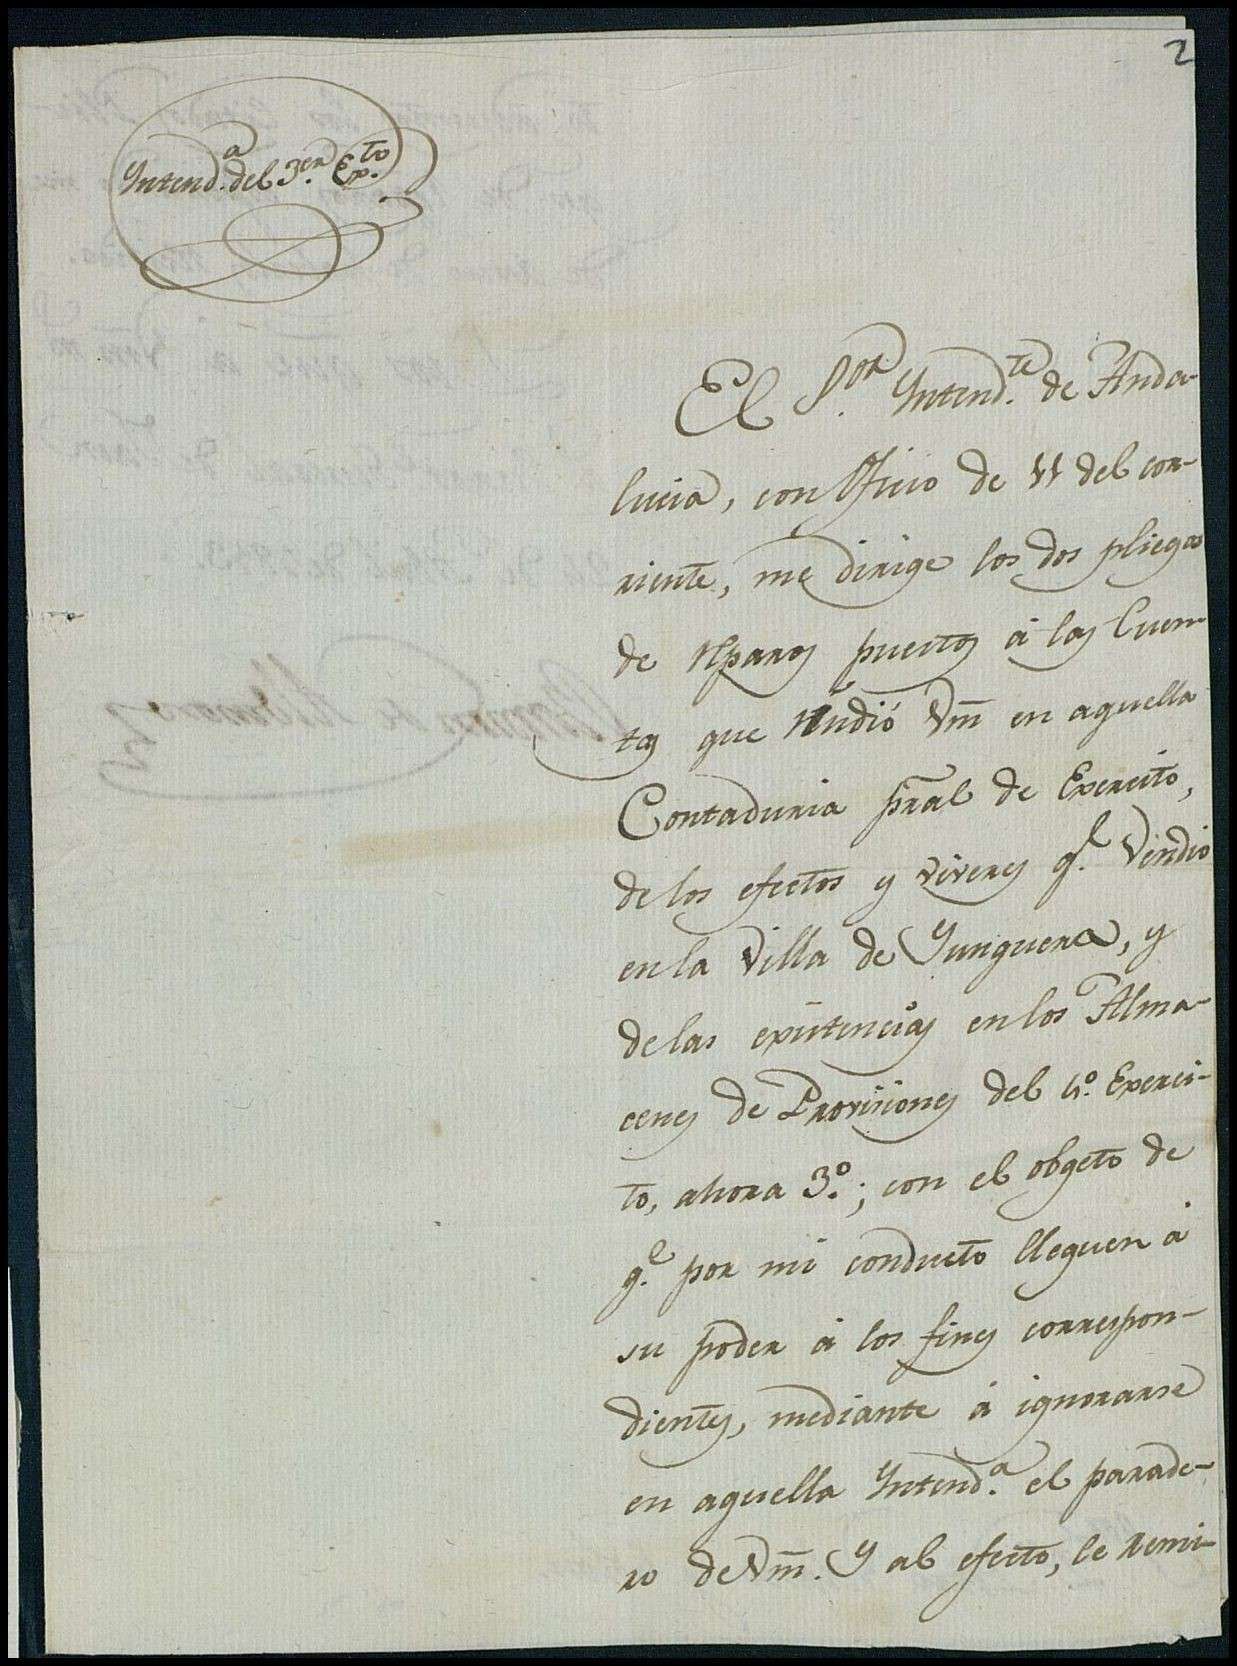 2
Intend.a del 3.er Exp.to
El S.or Intend.te de Anda-
lucia, con Oficio de 11 del cor-
riente, me dirige los dos pliegos
de reparos puestos á las Cuen-
tas que rindió Vm en aquella
Contaduria pral de Exercito,
de los efectos y viveres q.e vendió
en la Villa de Yunquera, y
de las existencias en los Alma-
cenes de Provisiones del 4.º Exerci-
to, ahora 3.º; con el objeto de
q.e por mi conducto lleguen á
su poder á los fines correspon-
dientes, mediante á ignorarse
en aquella Intend.a el parade-
ro de Vm. Y al efecto, le remi-